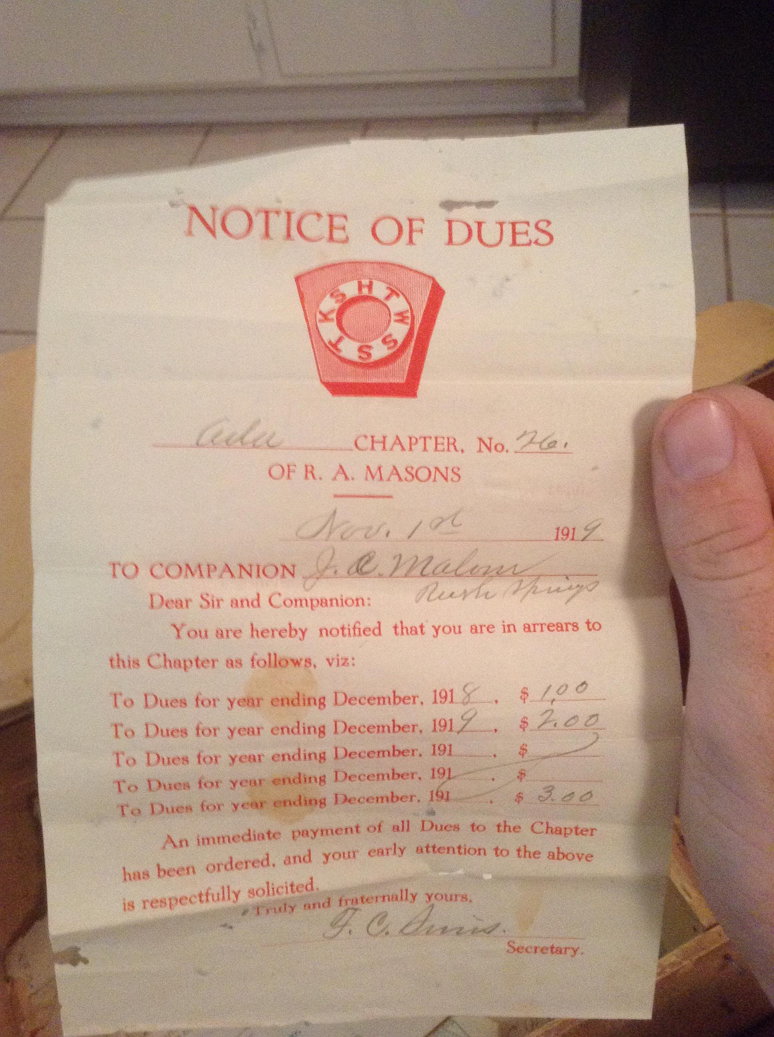 NOTICE OF DUES
H T W S S T K S
Ada CHAPTER, No. 26.
OF R. A. MASONS
Nov. 1st 1919
TO COMPANION J. C. Malone
Rush Springs
Dear Sir and Companion:
You are hereby notified that you are in arrears to
this Chapter as follows, viz:
To Dues for year ending December, 1918, $ 1.00
To Dues for year ending December, 1919, $ 2.00
To Dues for year ending December, 191 , $
To Dues for year ending December, 191 , $
To Dues for year ending December, 191 , $ 3.00
An immediate payment of all Dues to the Chapter
has been ordered, and your early attention to the above
is respectfully solicited.
Truly and fraternally yours,
F. C.
Secretary.